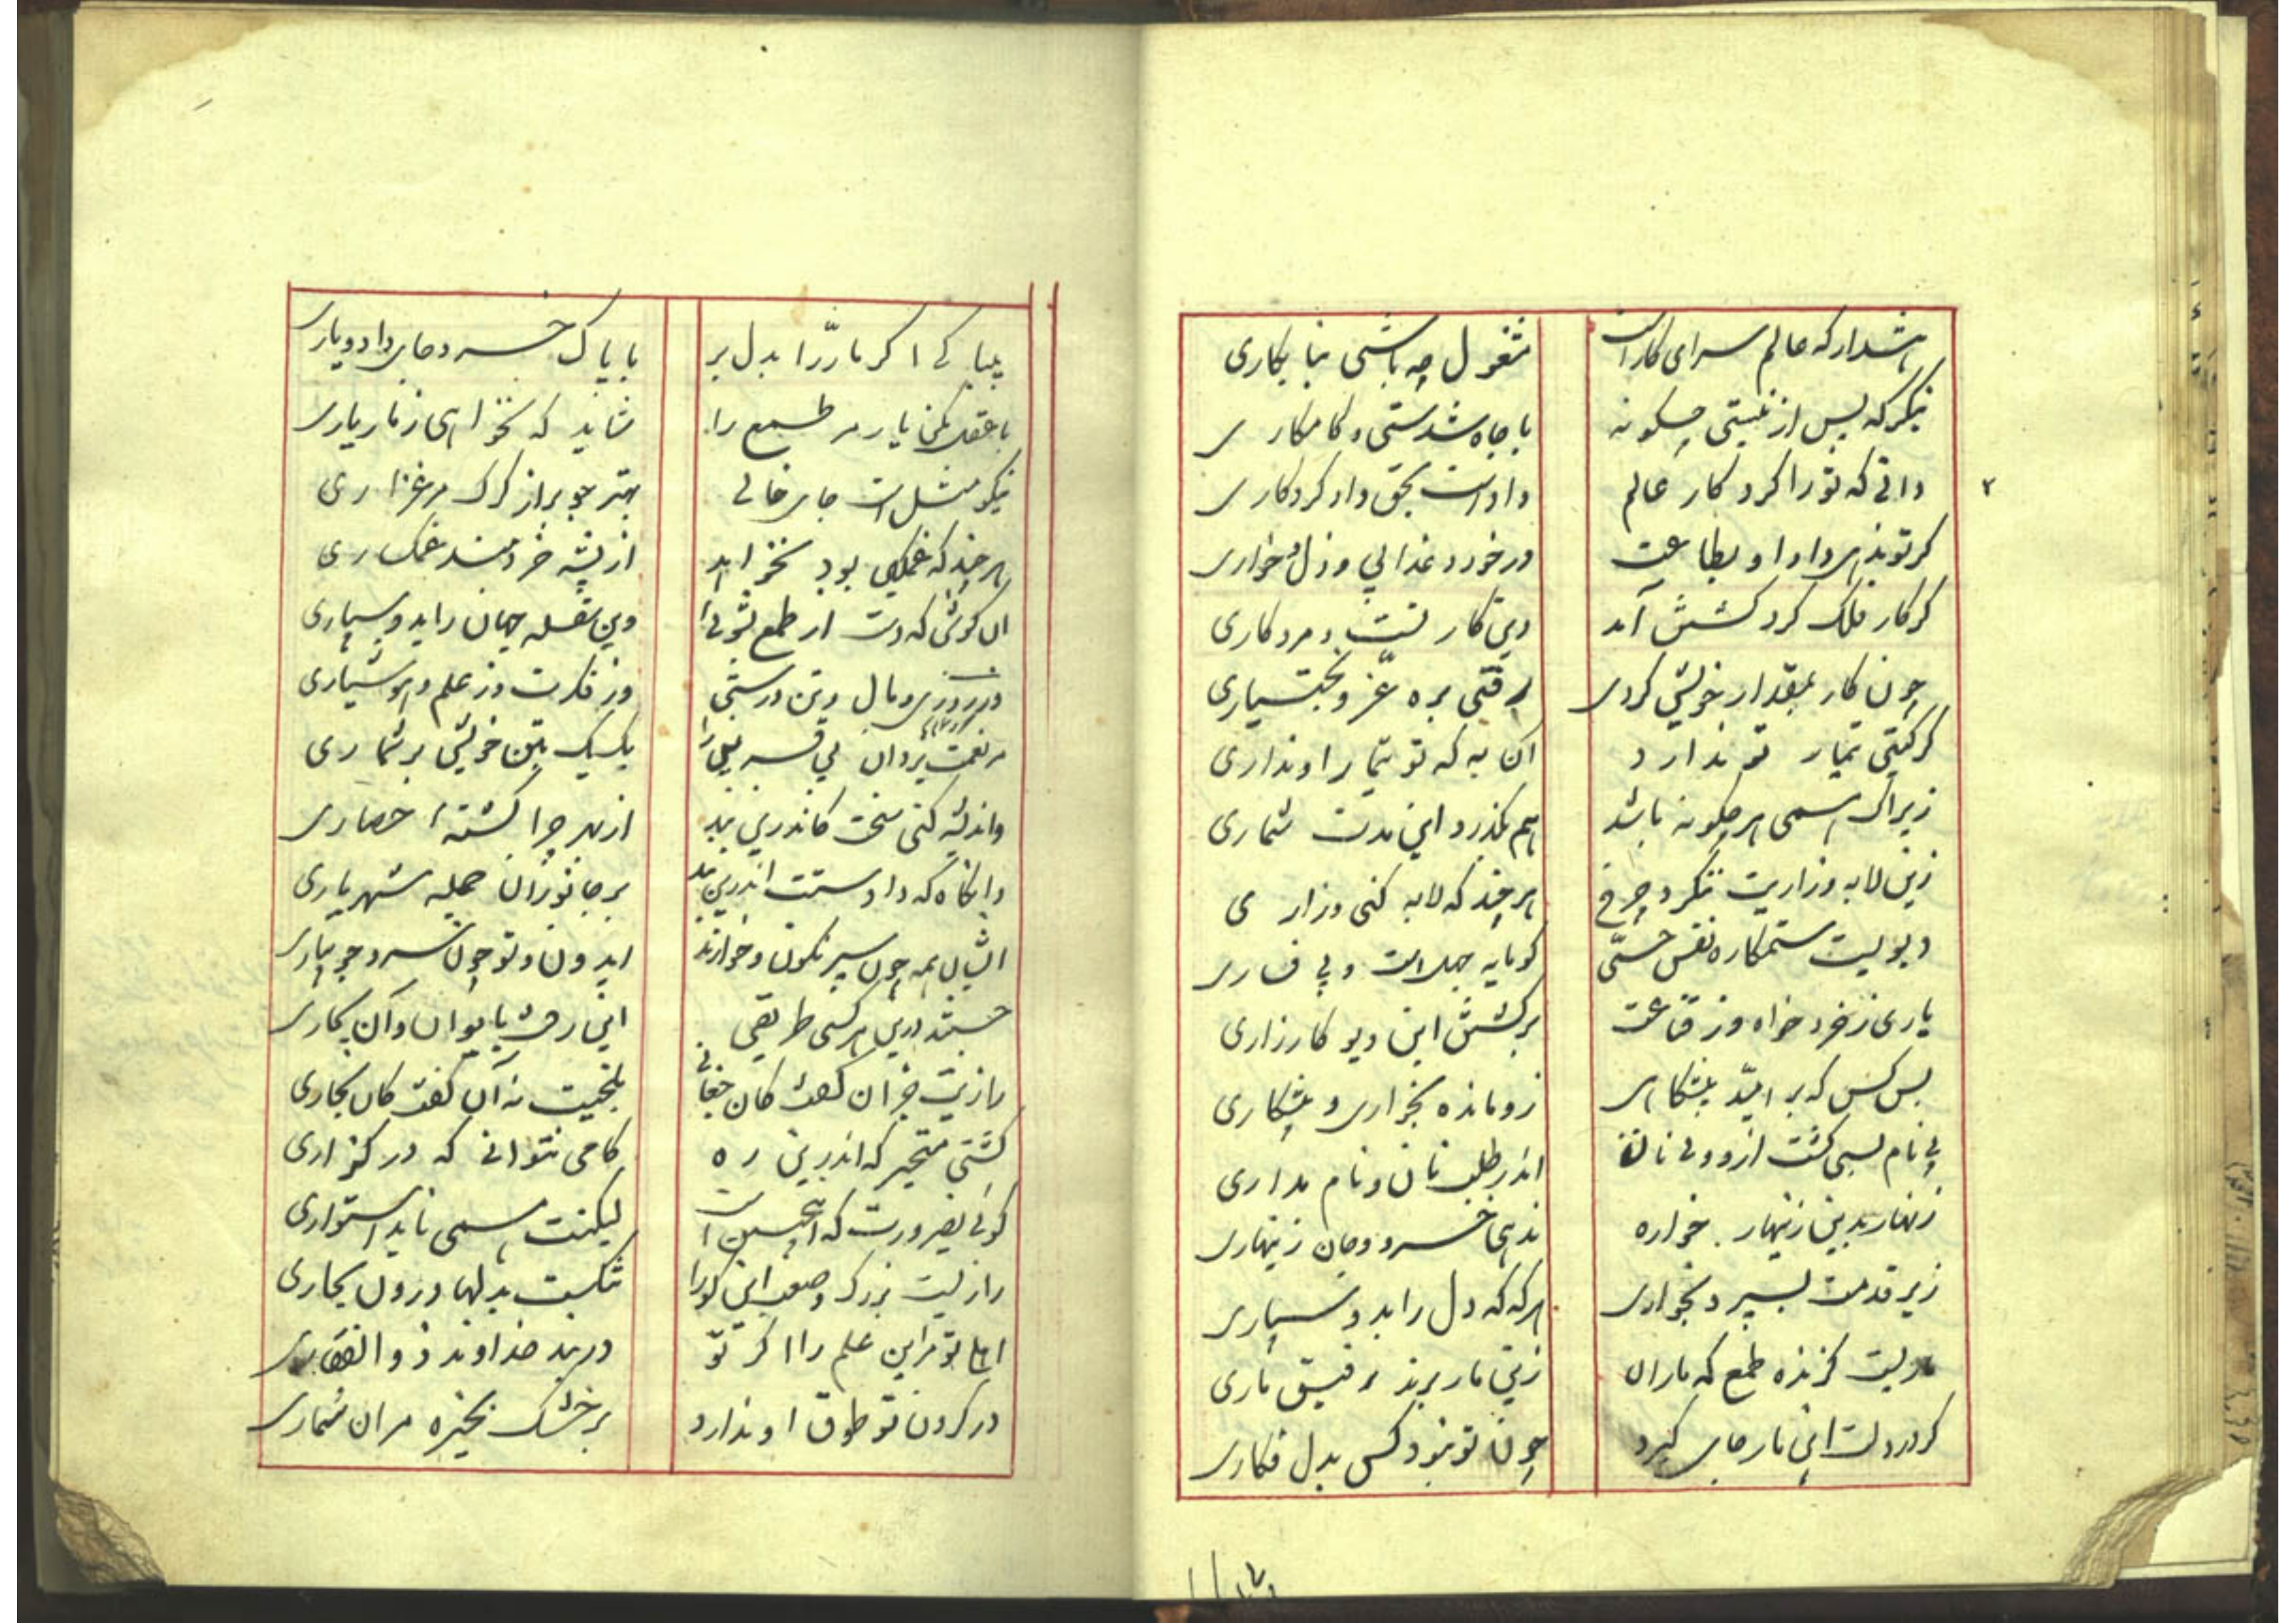 هشدار که عالم سرای کارست مشغول چه باشی بنا بکاری
بنگر که پس از نیستی چگونه با جاه شدستی و کامکاری
دانی که تو را کردگار عالم دادست بحق داد کردگاری
گر تو ندهی داد او بطاعت در خورد عذابی و ذل و خواری
گر کار فلک گرد گشتن آمد دین کار تست و مرد کاری
چون کار بمقدار خویش کردی رفتی بره عز و بختیاری
گر گیتی تیمار تو ندارد آن به که تو تیمار او نداری
زیراک اسمی هر چگونه باشد هم بگذرد این مدت شماری
زین لابه و زاریت ننگرد چرخ هر چند که لابه کنی و زاری
دیویست ستمکاره نفس حسّی کو مایه جهل است و بی فساری
یاری ز خرد خواه وز قناعت بر کشتن این دیو کارزاری
بس کس که بر امیّد پیشگاهی زو مانده بخواری و پیشکاری
بی نام بسی گشت ازو و بی نان اندر طلب نان و نام مداری
زنهار بدین زینهار خواره ندهی خرد و جان زینهاری
زیر قدمت بسپرد بخواری هر گه که دل را بدو سپاری
ماریست گزنده طمع که ماران زین مار برند رفیق ماری
گر در دلت این مار جای گیرد چون تو نبود کس بدل فکاری
بیبا کی اگر مار را بدل بر با پاک خرد جای داد و یاری
با عقل مکن یار مر طمع را شاید که نخواهی ز مار یاری
نیکو مثلست جای خالی بهتر چو بر از گرگ مرغزاری
هر چند که غمگین بود نخواهد از پشه خردمند غمگساری
آن گوئی که دست از طمع بشوئی وین سفله جهان را بدو سپاری
در روزی و مال و تن درستی وز فکرت وز علم و هوشیاری
مر نعمت یزدان بی قرینی را یکیک بتن خویش بر شماری
و اندیشه کنی سخت کاندرین بند از بهر چرا گشتهٔ حصاری
و آنگاه که دادستت اندرین بند بر جانوران جمله شهریاری
ایشان همه چون سرنگون و خوارند ایدون و تو چون سرو جویباری
جستند درین هر کسی طریقی این رفت بایوان و آن بکاری
رازیت جز آن گفت کان چغانی بلخیت نه آن گفت کان بخاری
گشتی متحیر که اندرین ره گامی نتوانی که در گزاری
گوئی بضرورت که این چنین است لیکنت اسمی ناید استواری
رازیست بزرگ و صعب این کو را شکیبت بدلها درون بجاری
اهلی تو مر این علم را اگر تو در بند خداوند ذو الفقاری
در گردن تو طوق او ندارد بر خشک بخیزه مران شماری